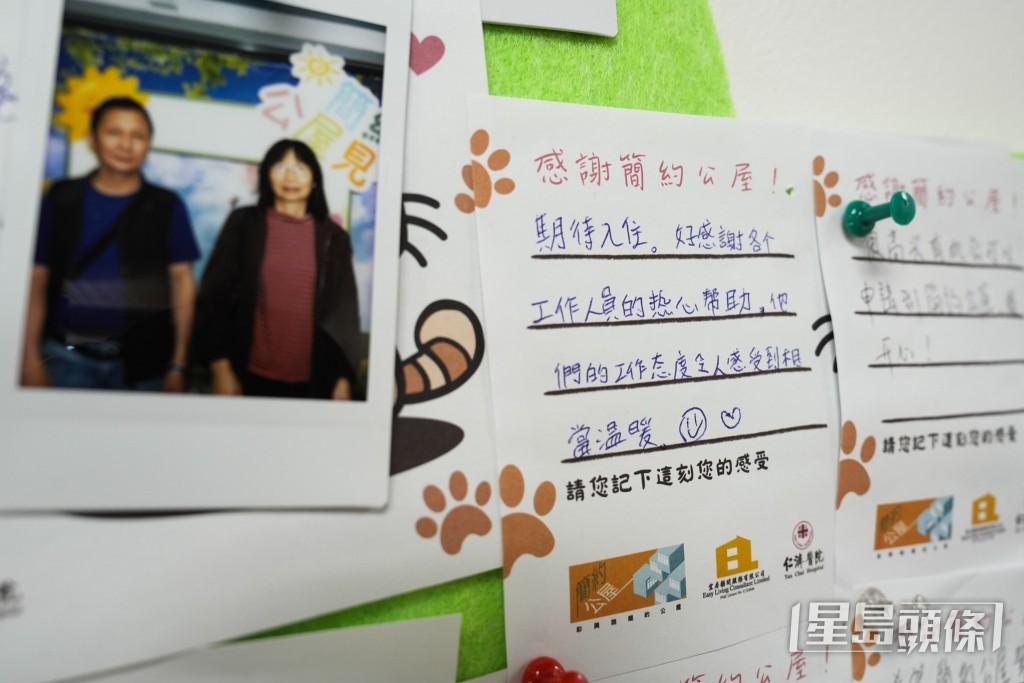 簡約
公屋
見
感謝簡約公屋！
期待入住。好感謝各个
工作人員的热心帮助。他
們的工作态度全人感受到相
當温暖
請您記下這刻您的感受
簡約
公屋
宜居顧問服務有限公司
Easy Living Consultant Limited
仁濟醫院
Yan Chai Hospital
感謝簡約公屋！
申請到簡約公屋
开心！
請您記下這刻您的感受
簡約
公屋
公屋！
星島頭條